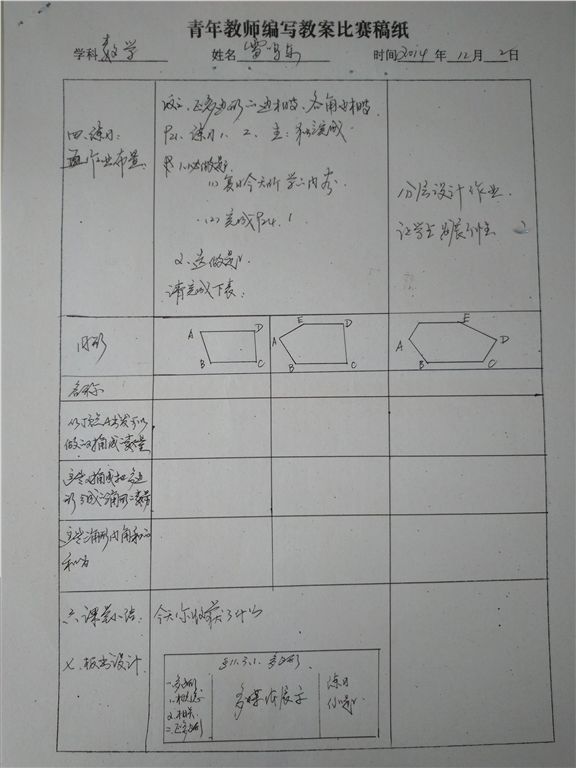 青年教师编写教案比赛稿纸
学科 数学 姓名 时间 2014 年 12 月 2 日
四、练习:
五、作业布置:
正多边形 边相等、各角也相等.
P21. 练习1、2. 生: 独立完成
1、必做题:
(1) 复习今天所学内容.
(2) 完成P24. 1
2、选做题:
请完成下表:
分层设计作业.
让学生
图形
A B C D
A B C D E
A B C D E
名称
以顶点A出发可以
做 对角线 数量
这些对角线把多边
形分成三角形 数量
这些三角形内角和
和为
六、课堂小结:
今天你收获了什么
七、板书设计
§11.3.1. 多边形.
一、多边形
1.概念
2.相关
二、正多边形
多媒体展示
练习